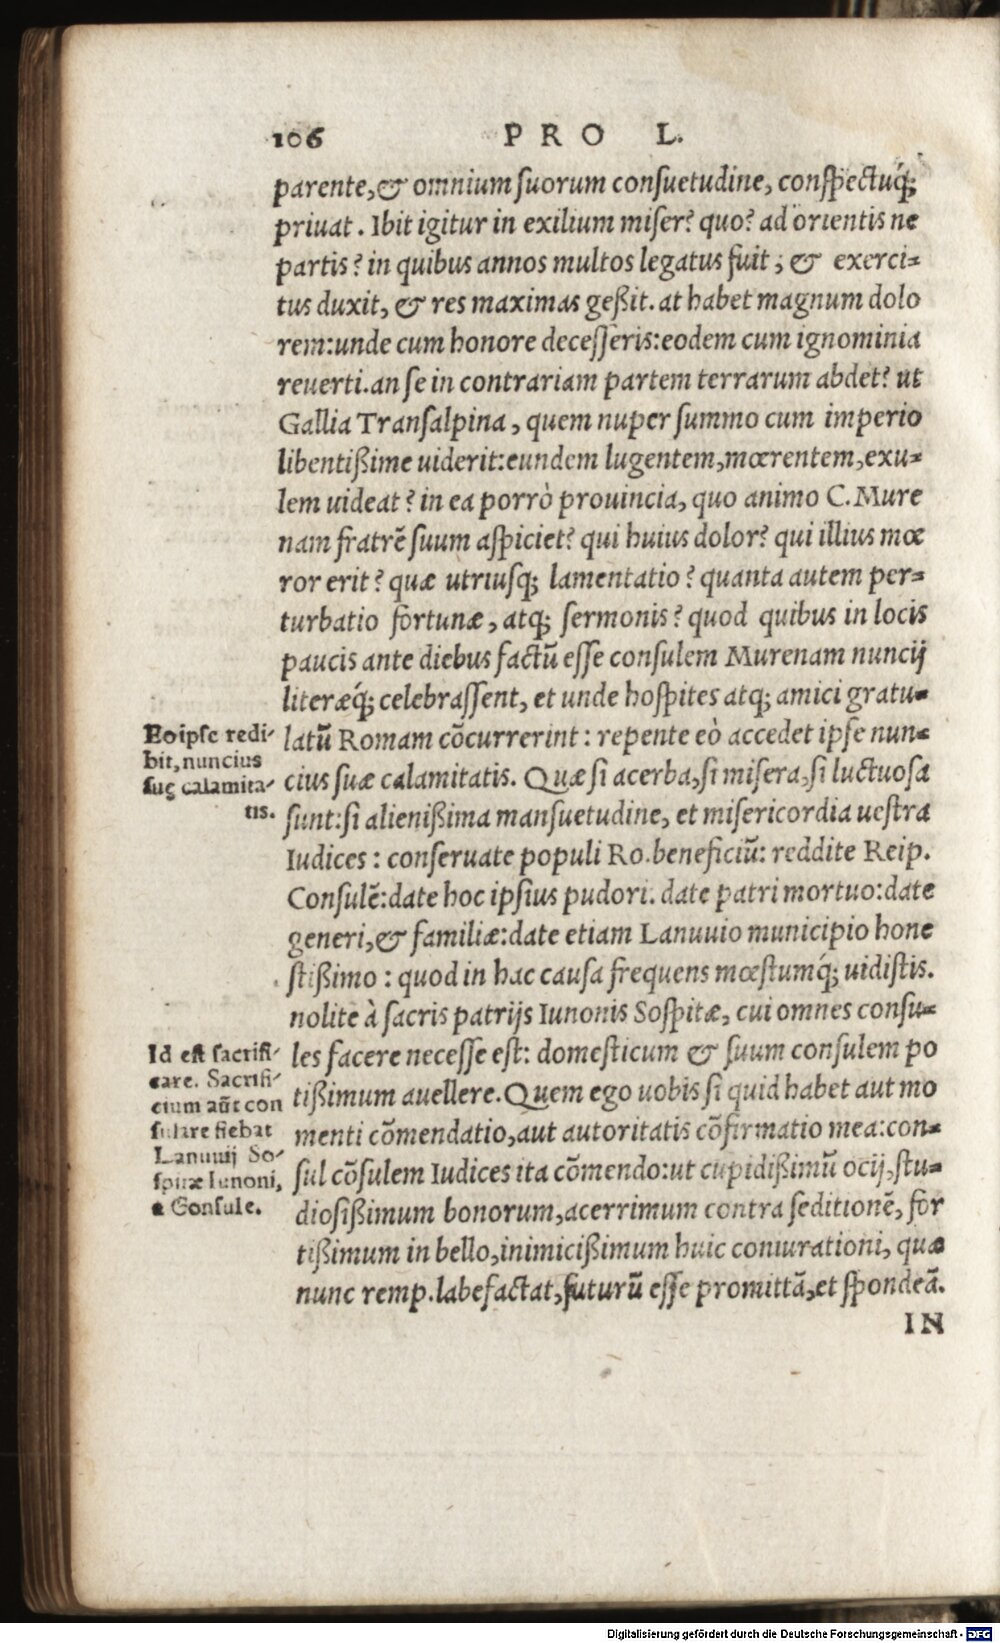 106 PRO L.
parente,& omnium suorum consuetudine, conspectuq́;
priuat. Ibit igitur in exilium miser? quo? ad orientis ne
partis? in quibus annos multos legatus fuit, & exerci-
tus duxit, & res maximas geßit. at habet magnum dolo
rem:unde cum honore decesseris:eodem cum ignominia
reuerti.an se in contrariam partem terrarum abdet? ut
Gallia Transalpina, quem nuper summo cum imperio
libentißime uiderit:eundem lugentem,mœrentem,exu-
lem uideat? in ea porrò prouincia, quo animo C.Mure
nam fratrẽ suum aspiciet? qui huius dolor? qui illius mœ
ror erit? quæ utriusq; lamentatio? quanta autem per-
turbatio fortunæ, atq; sermonis? quod quibus in locis
paucis ante diebus factũ esse consulem Murenam nuncij
literæq́; celebrassent, et unde hospites atq; amici gratu-
latũ Romam cõcurrerint: repente eò accedet ipse nun-
cius suæ calamitatis. Quæ si acerba,si misera,si luctuosa
sunt:si alienißima mansuetudine, et misericordia uestra
Iudices: conseruate populi Ro.beneficiũ: reddite Reip.
Consulẽ:date hoc ipsius pudori. date patri mortuo:date
generi,& familiæ:date etiam Lanuuio municipio hone
stißimo: quod in hac causa frequens mœstumq́; uidistis.
nolite à sacris patrijs Iunonis Sospitæ, cui omnes consu-
les facere necesse est: domesticum & suum consulem po
tißimum auellere. Quem ego uobis si quid habet aut mo
menti cõmendatio,aut autoritatis cõfirmatio mea:con-
sul cõsulem Iudices ita cõmendo:ut cupidißimũ ocij,stu-
diosißimum bonorum,acerrimum contra seditionẽ, for
tißimum in bello,inimicißimum huic coniurationi, quæ
nunc remp.labefactat,futurũ esse promittã,et spondeã.
IN
Eo ipse redi-
bit, nuncius
suę calamita-
tis.
Id est sacrifi-
care. Sacrifi-
cium aũt con
sulare fiebat
Lanuuij So-
spitæ Iunoni,
a Consule.
Digitalisierung gefördert durch die Deutsche Forschungsgemeinschaft - DFG